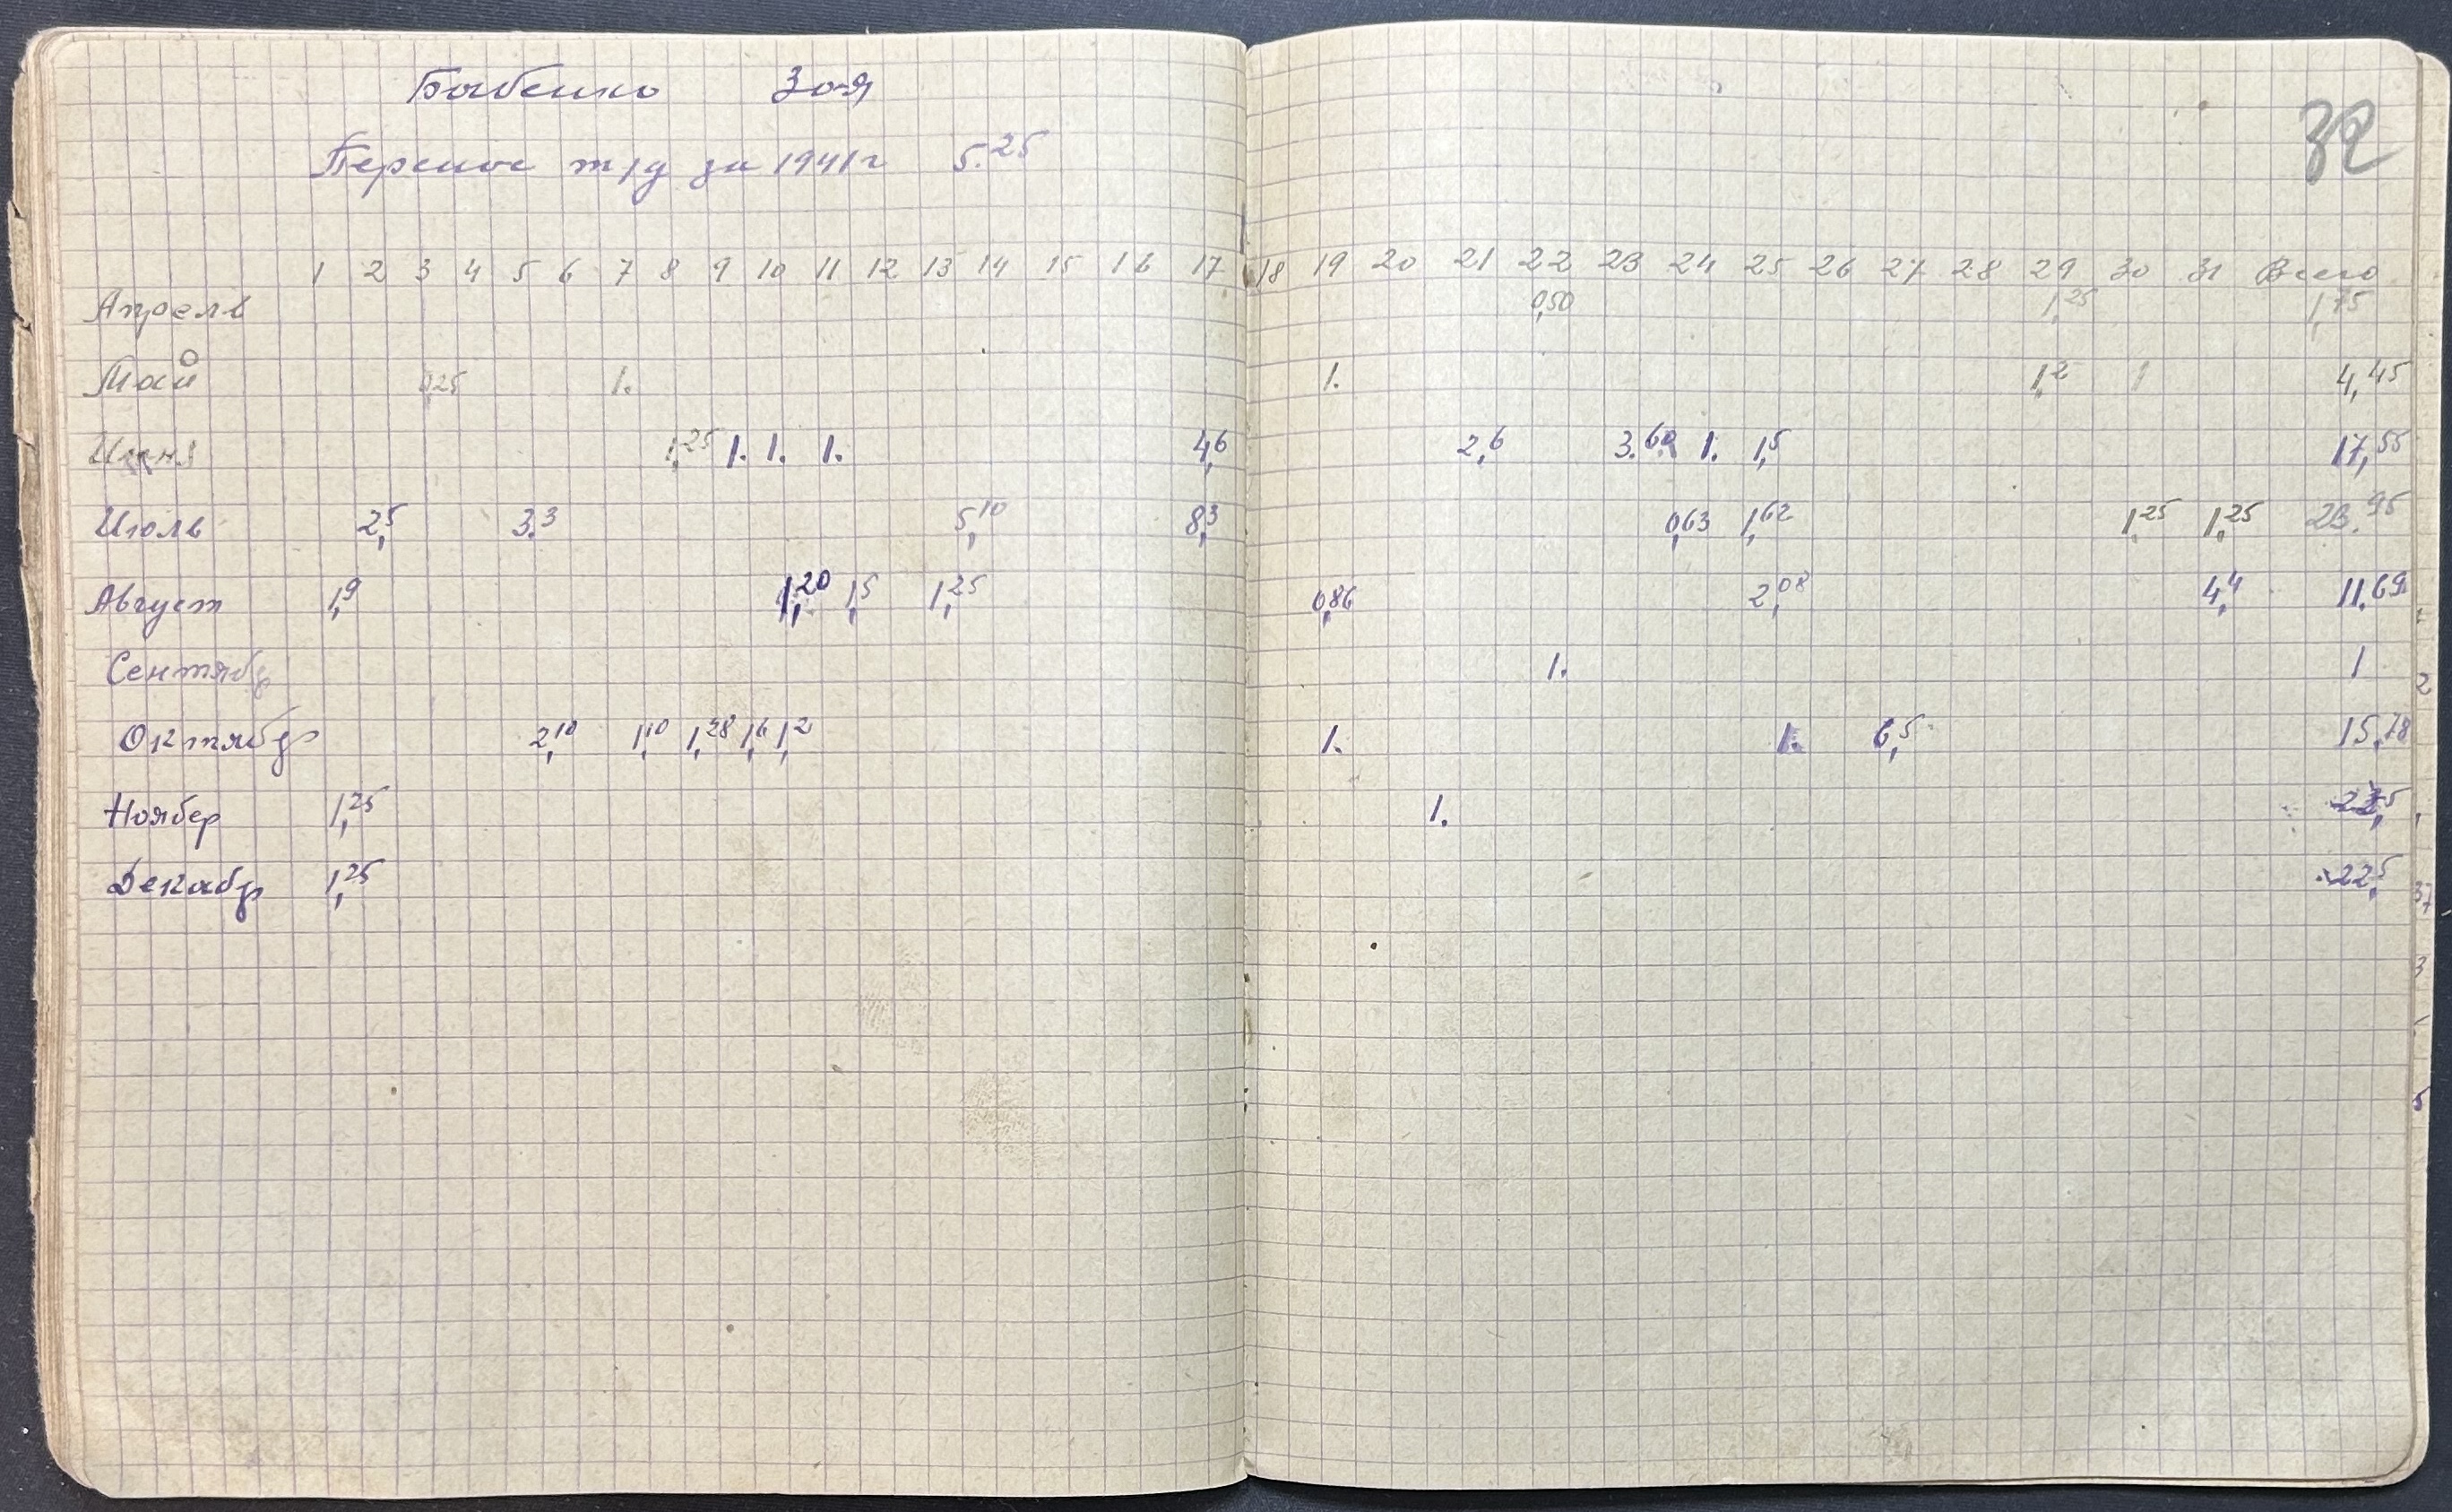 Бабенко Зоя
32
Перенос т/д за 1941 г 5.25
1 2 3 4 5 6 7 8 9 10 11 12 13 14 15 16 17 18 19 20 21 22 23 24 25 26 27 28 29 30 31 Всего
Апрель 0,50 1,25 1,75
Май 0,25 1. 1. 1,2 1 4,45
Июня 1,25 1. 1. 1. 4,6 2,6 3.60 1. 1,5 17,55
Июль 2,5 3.3 5,10 8,3 0,63 1,62 1,25 1,25 23.95
Август 1,9 1,20 1,5 1,25 0,86 2,08 4,4 11.69
Сентябр 1. 1
Октябр 2,10 1,10 1,28 1,6 1,2 1. 1. 6,5 15,78
Ноябер 1,25 1.
Декабр 1,25